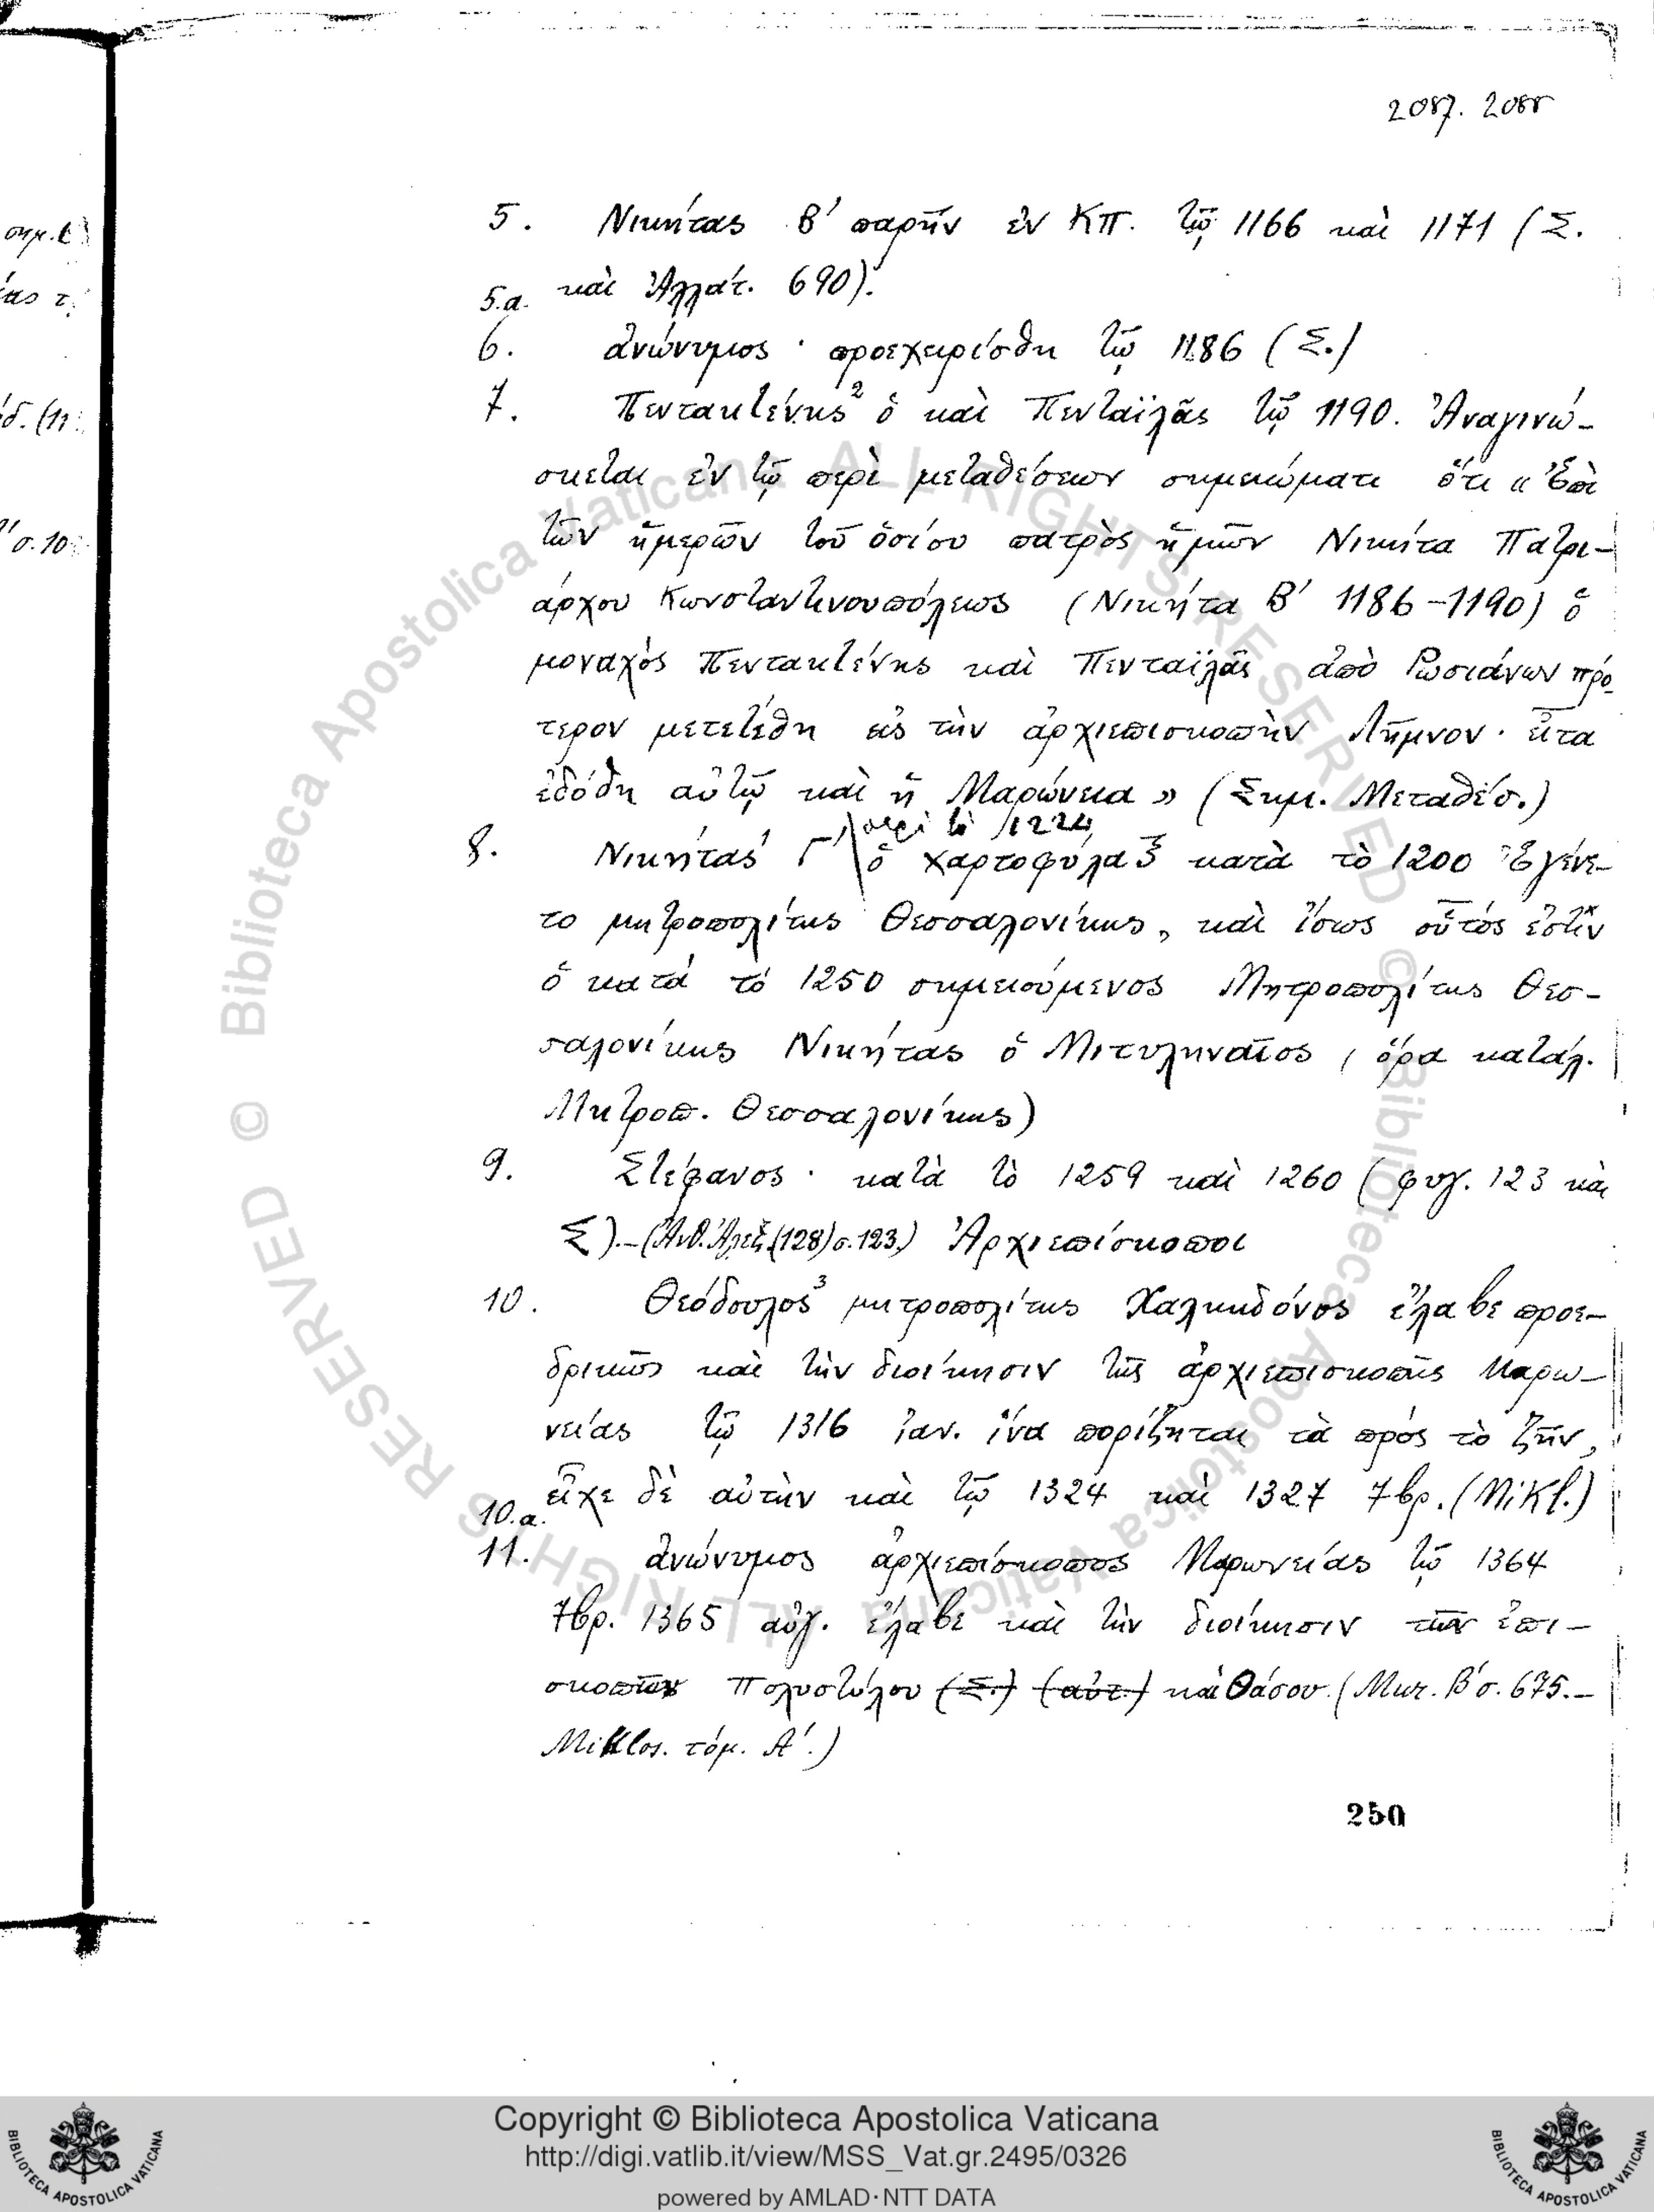 2087. 2088
5. Νικήτας Β' παρῆν ἐν ΚΠ. τῷ 1166 καὶ 1171 (Σ.
5.α. καὶ Ἀλλάτ. 690).
6. ἀνώνυμος · προεχειρίσθη τῷ 1186 (Σ.)
7. Πεντακτένης² ὁ καὶ Πενταϊλᾶς τῷ 1190. Ἀναγινώ-
σκεται ἐν τῷ περὶ μεταθέσεων σημειώματι ὅτι « Ἐπὶ
τῶν ἡμερῶν τοῦ ὁσίου πατρὸς ἡμῶν Νικήτα Πατρι-
άρχου Κωνσταντινουπόλεως (Νικήτα Β' 1186-1190) ὁ
μοναχὸς Πεντακτένης καὶ Πενταϊλᾶς ἀπὸ Ρωσιάνων πρό-
τερον μετετέθη εἰς τὴν ἀρχιεπισκοπὴν Λῆμνον · εἶτα
ἐδόθη αὐτῷ καὶ ἡ Μαρώνεια » (Σημ. Μεταθέσ.)
περὶ τὸ 1224
8. Νικήτας Γ' ὁ χαρτοφύλαξ κατὰ τὸ 1200 Ἐγένε-
το μητροπολίτης Θεσσαλονίκης, καὶ ἴσως οὗτός ἐστιν
ὁ κατὰ τὸ 1250 σημειούμενος Μητροπολίτης Θεσ-
σαλονίκης Νικήτας ὁ Μιτυληναῖος, ὅρα κατάλ.
Μητροπ. Θεσσαλονίκης)
9. Στέφανος · κατὰ τὸ 1259 καὶ 1260 (φυλ. 123 καὶ
Σ).-(Ἀνθ. Ἀλεξ. (128) σ. 123.) Ἀρχιεπίσκοποι
10. Θεόδουλος³ μητροπολίτης Χαλκηδόνος ἔλαβε προε-
δρικῶς καὶ τὴν διοίκησιν τῆς ἀρχιεπισκοπῆς Μαρω-
νείας τῷ 1316 ἰαν. ἵνα πορίζηται τὰ πρὸς τὸ ζῆν,
εἶχε δὲ αὐτὴν καὶ τῷ 1324 καὶ 1327 7βρ. (Mikl.)
10.α.
11. ἀνώνυμος ἀρχιεπίσκοπος Μαρωνείας τῷ 1364
7βρ. 1365 αὐγ. ἔλαβε καὶ τὴν διοίκησιν τῶν ἐπι-
σκοπῶν Πολυστύλου (Σ.) (αὐτ.) καὶ Θάσου. (Μικ. Β' σ. 675.-
Miklos. τόμ. Α'.)
250
σημ. β)
ίας τ.
ίδ. (11
σ. 10
© Biblioteca Apostolica Vaticana ALL RIGHTS RESERVED © Biblioteca Apostolica Vaticana ALL RIGHTS RESERVED
Copyright © Biblioteca Apostolica Vaticana
http://digi.vatlib.it/view/MSS_Vat.gr.2495/0326
powered by AMLAD·NTT DATA
BIBLIOTECA APOSTOLICA VATICANA
BIBLIOTECA APOSTOLICA VATICANA